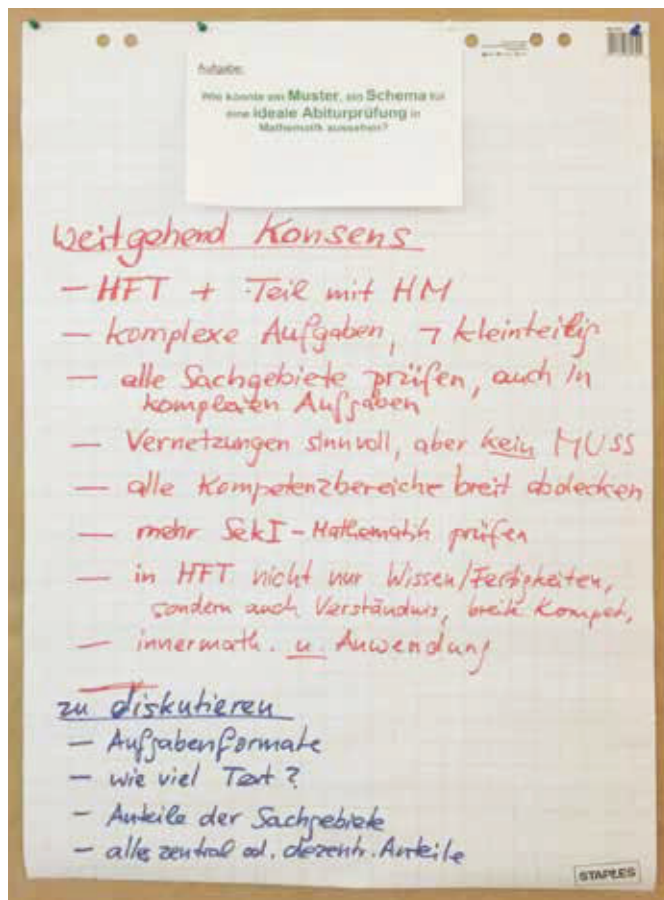 Aufgabe:
Wie könnte ein Muster, ein Schema für
eine ideale Abiturprüfung in
Mathematik aussehen?
weitgehend Konsens
– HFT + Teil mit HM
– komplexe Aufgaben, ¬ kleinteilig
– alle Sachgebiete prüfen, auch in
komplexen Aufgaben
– Vernetzungen sinnvoll, aber kein MUSS
– alle Kompetenzbereiche breit abdecken
– mehr SekI-Mathematik prüfen
– in HFT nicht nur Wissen/Fertigkeiten,
sondern auch Verständnis, breite Kompet.
– innermath. u. Anwendung
zu diskutieren
– Aufgabenformate
– wie viel Text?
– Anteile der Sachgebiete
– alles zentral od. dezentr. Anteile
STAPLES